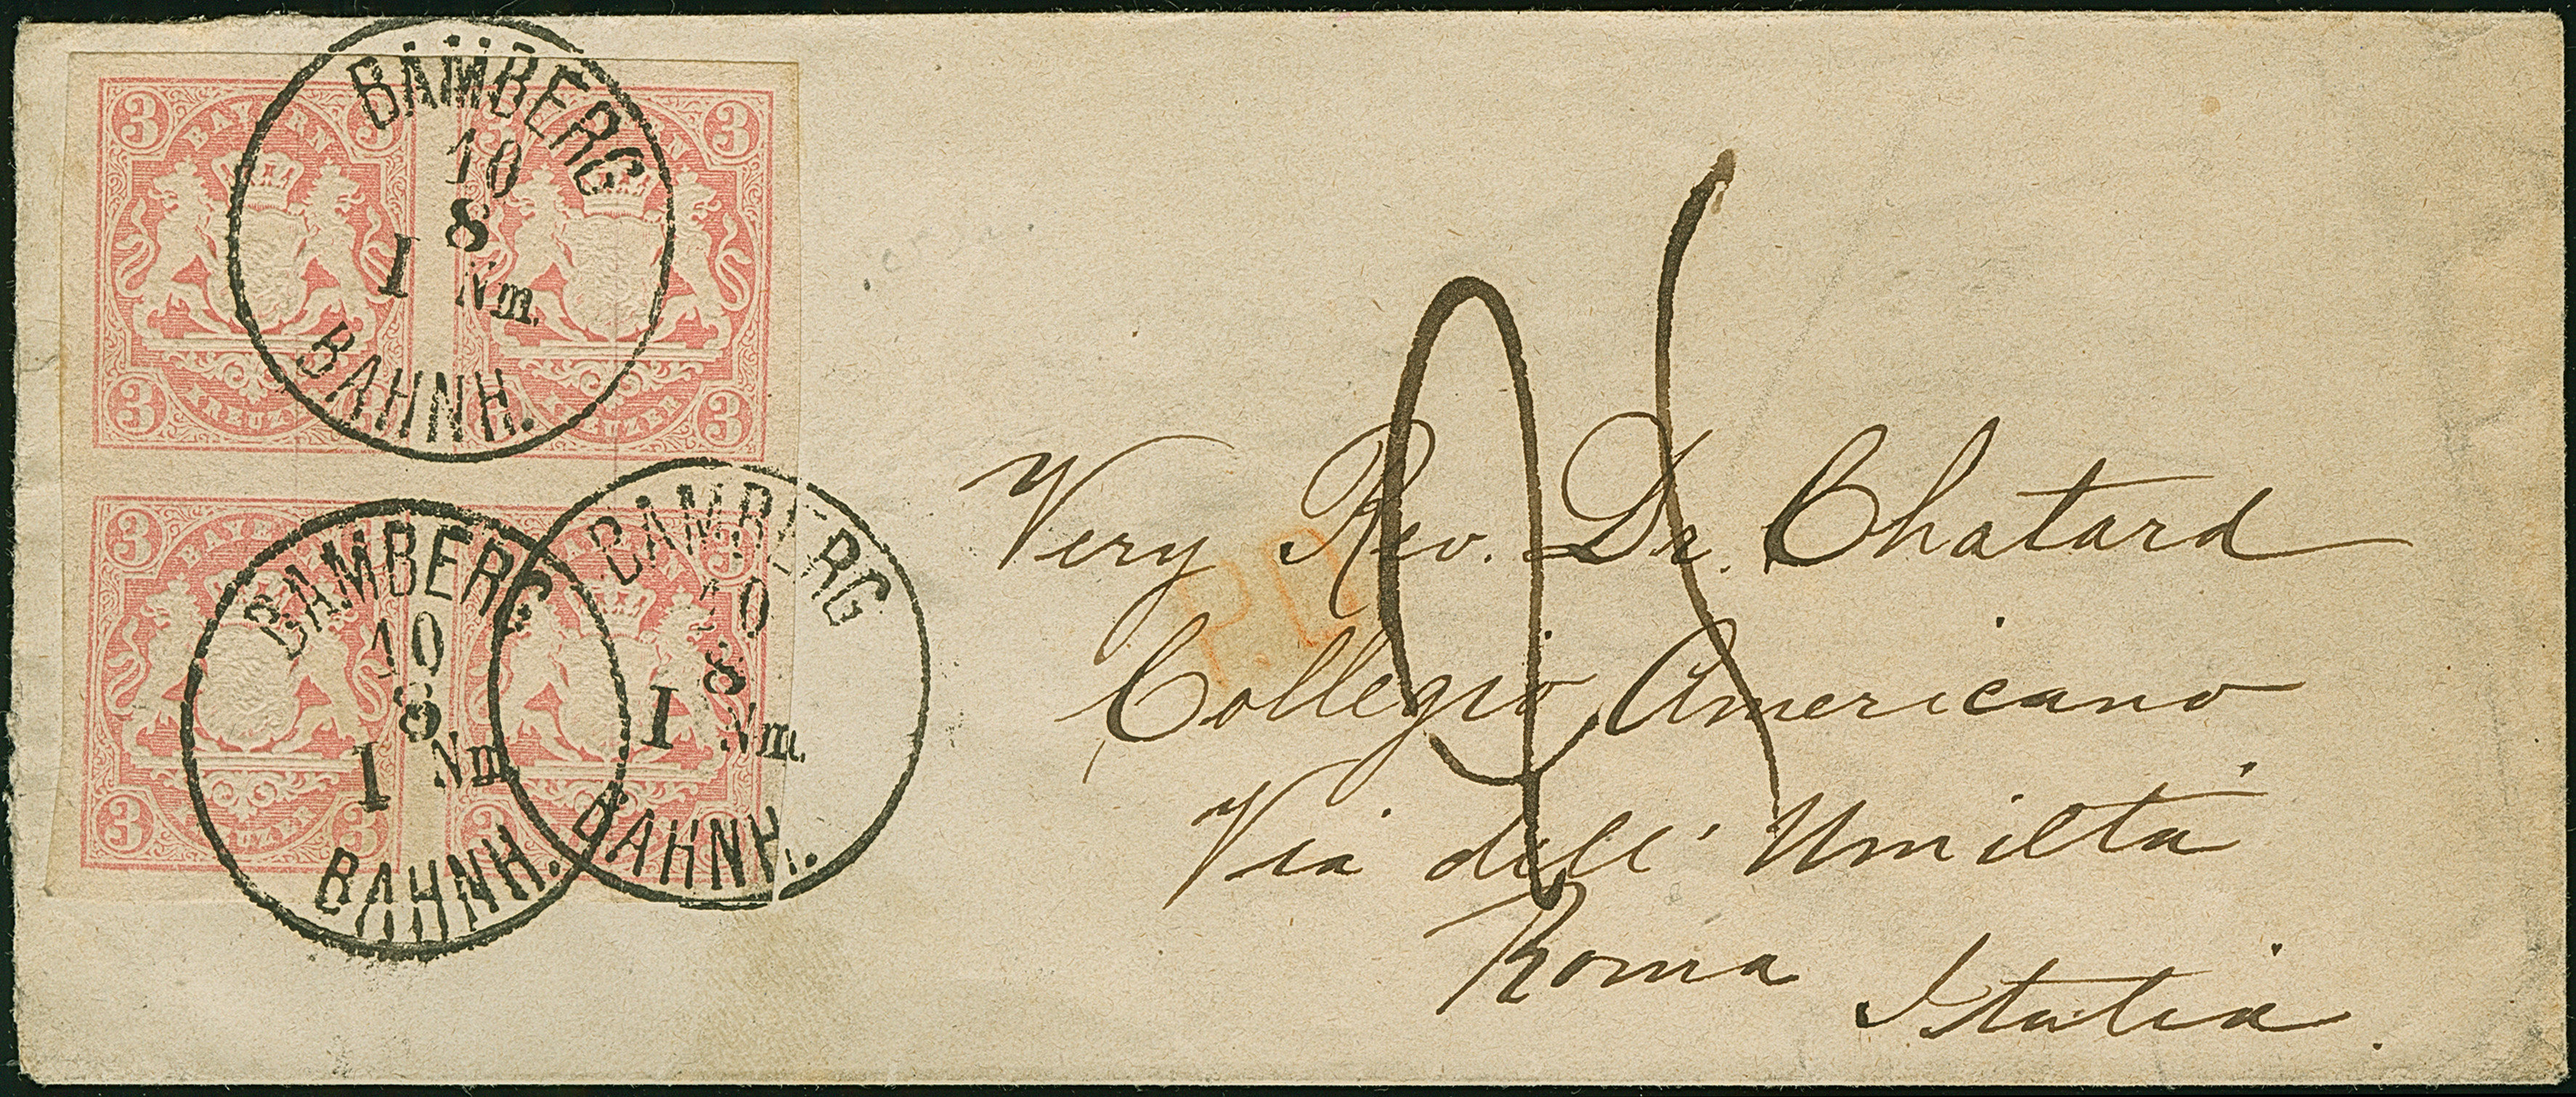 3 BAYERN 3
3 KREUZER 3
BAYERN 3
3 KREUZER 3
3 BAYERN
3 KREUZER 3
BAYERN 3
BAMBERG
10
8
1 Nm.
BAHNH.
BAMBERG
10
8
1 Nm.
BAHNH.
BAMBERG
10
8
1 Nm.
BAHNH.
P.D
Very Rev. Dr. Chatard
Collegio Americano
Via dell' Umiltà
Roma
Italia.